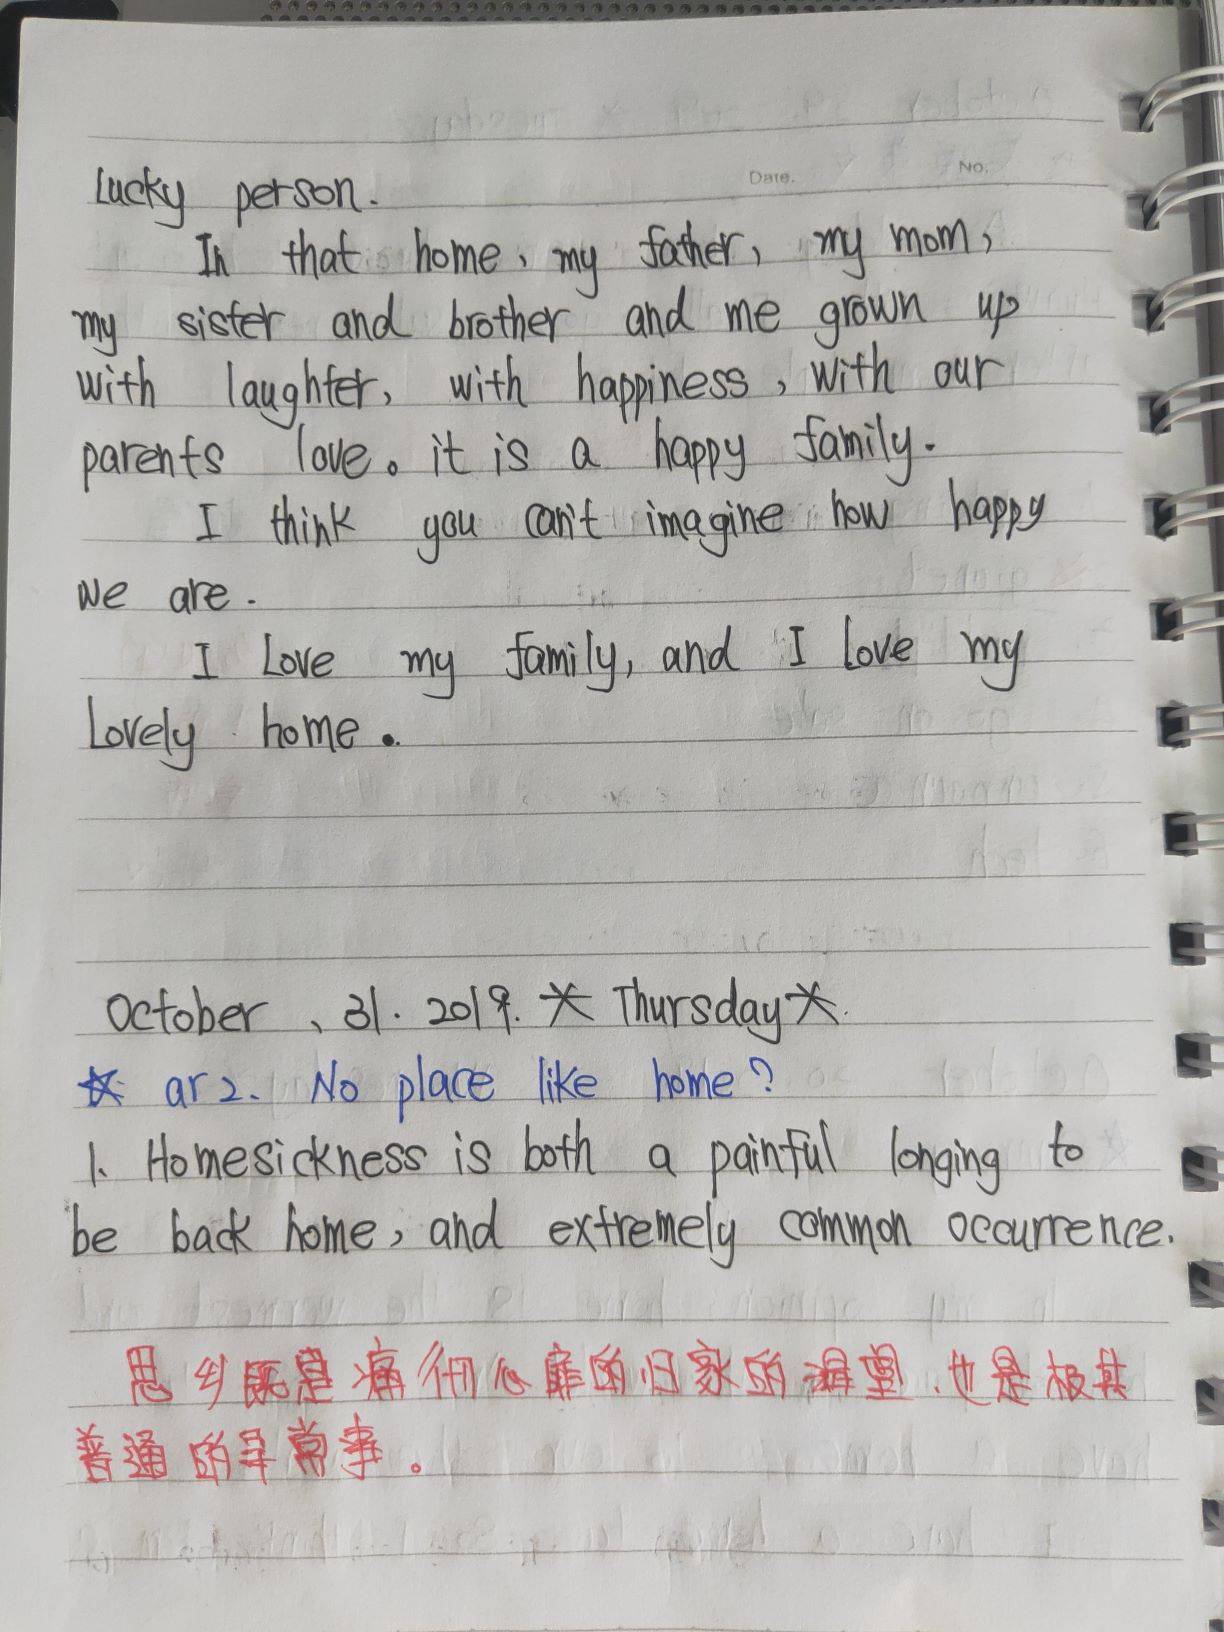 Date.
No.
Lucky person.
In that home, my father, my mom,
my sister and brother and me grown up
with laughter, with happiness, with our
parents love。it is a happy family.
I think you can't imagine how happy
we are.
I Love my family, and I Love my
Lovely home.
October 、31. 2019. * Thursday *.
☆ ar 2. No place like home?
1. Homesickness is both a painful longing to
be back home, and extremely common occurrence.
思乡既是痛彻心扉的归家的渴望、也是极其
普通的寻常事。